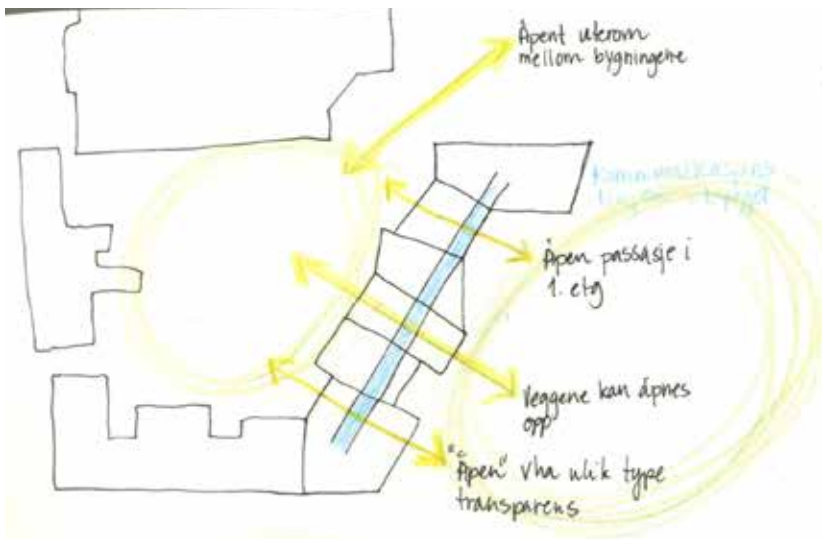 Åpent uterom
mellom bygningene
Kommunikasjons
Åpen passasje i
1. etg
Veggene kan åpnes
opp
"Åpen" vha ulik type
transparens